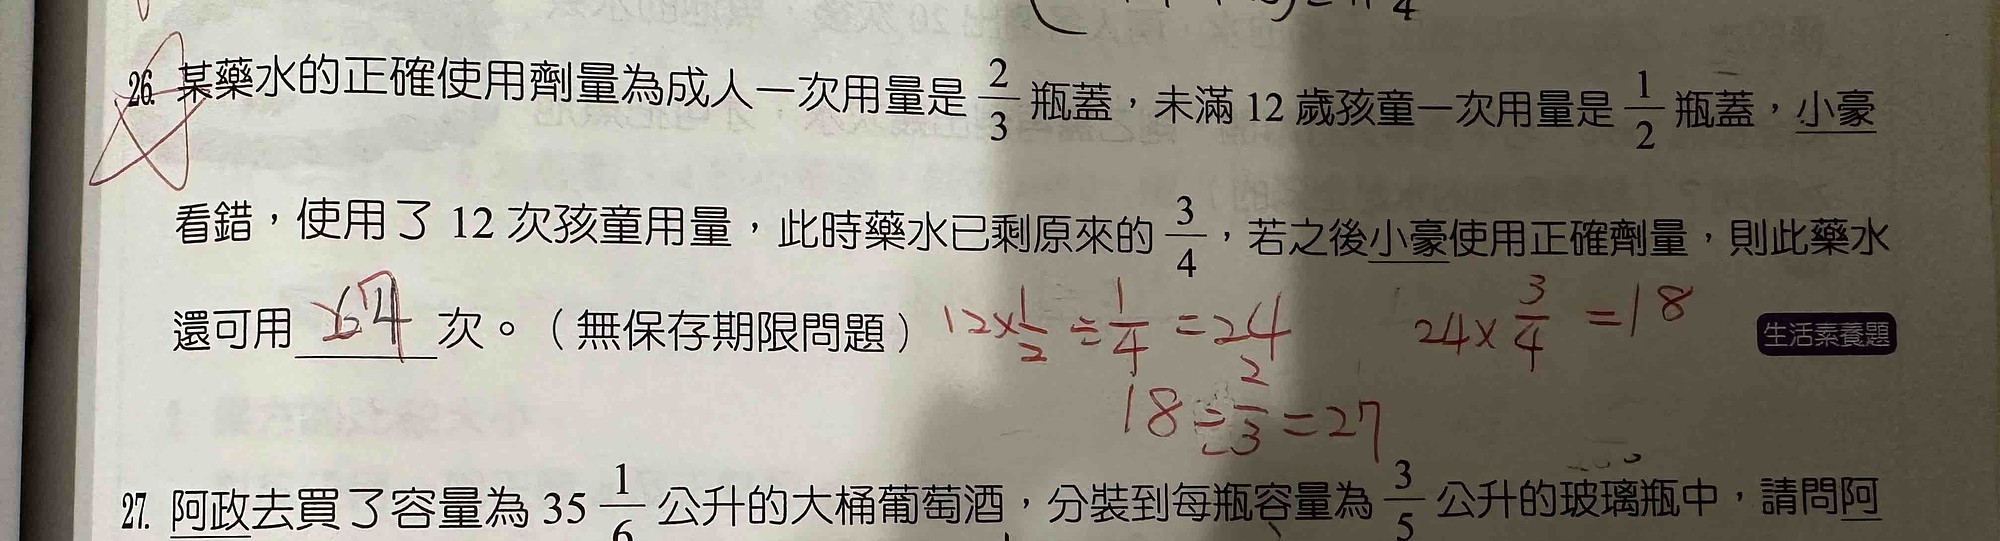 26. 某藥水的正確使用劑量為成人一次用量是 2/3 瓶蓋，未滿 12 歲孩童一次用量是 1/2 瓶蓋，小豪
看錯，使用了 12 次孩童用量，此時藥水已剩原來的 3/4，若之後小豪使用正確劑量，則此藥水
還可用 次。（無保存期限問題）
12×1/2÷1/4=24
24×3/4=18
生活素養題
18÷2/3=27
27. 阿政去買了容量為 35 1/6 公升的大桶葡萄酒，分裝到每瓶容量為 3/5 公升的玻璃瓶中，請問阿